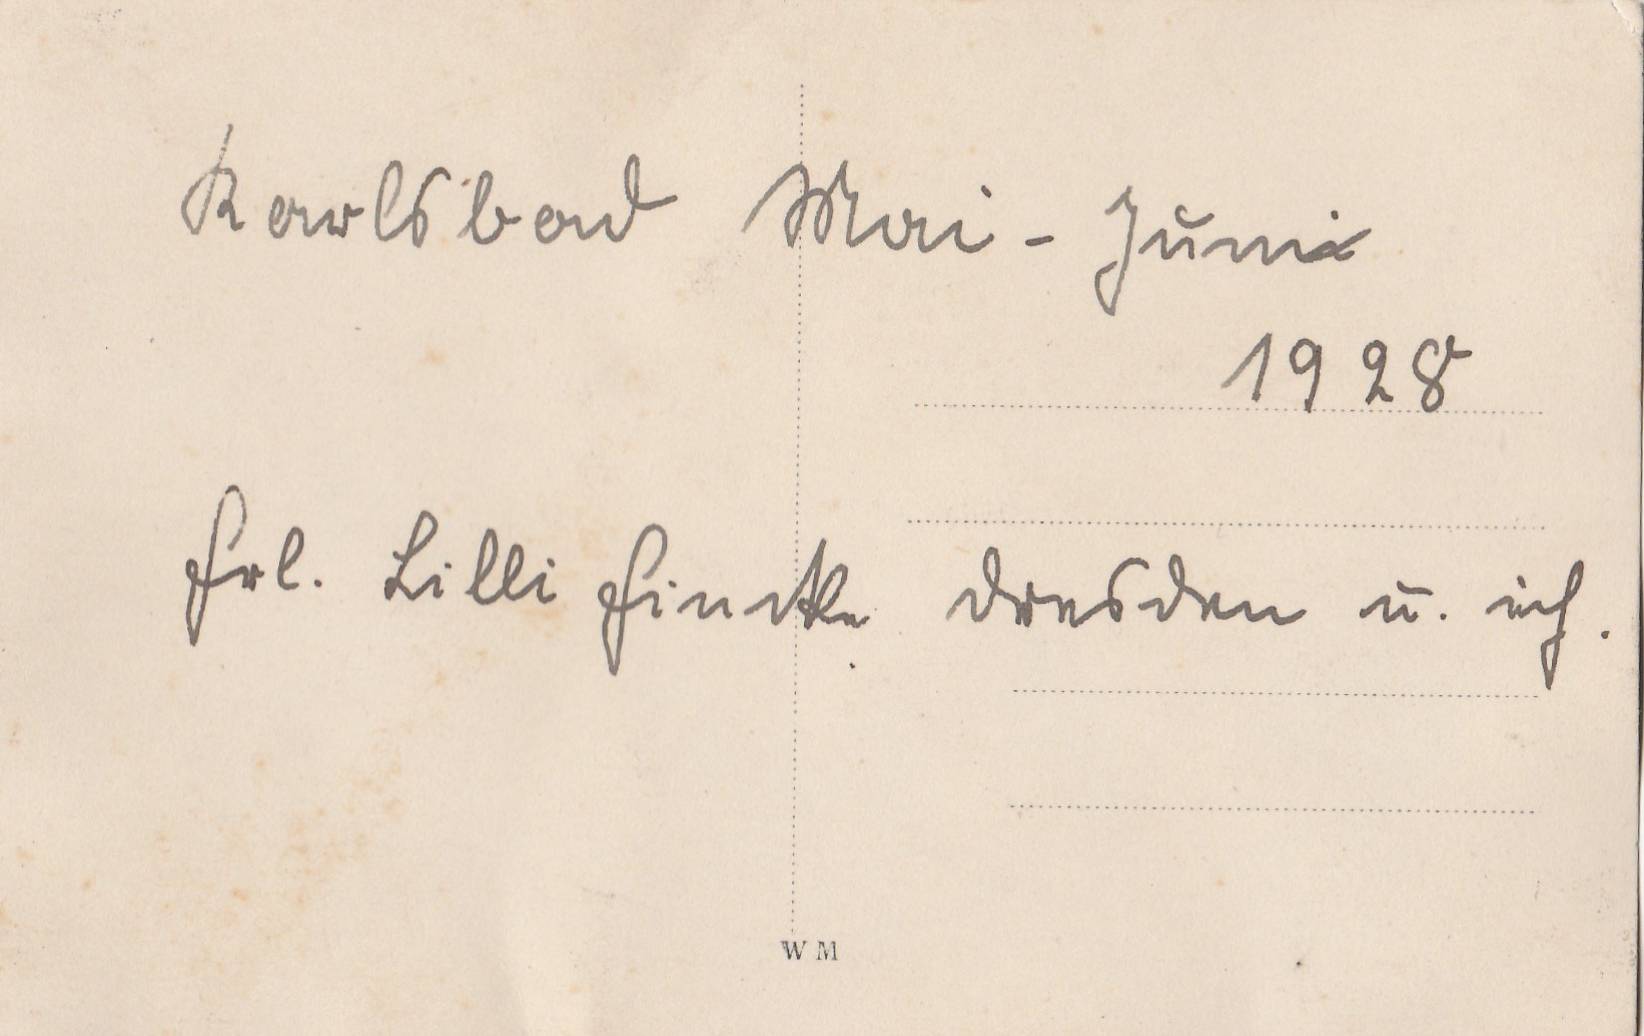 Karlsbad Mai - Juni
1928
Frl. Lilli Fincke Dresden u. ich.
W M